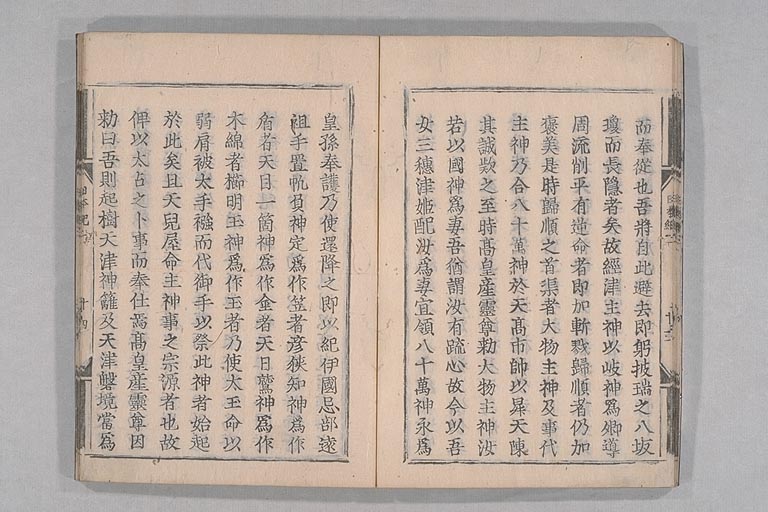 而奉從也吾將自此避去即躬披瑞之八坂
瓊而長隱者矣故經津主神以岐神爲鄕導
周流削平有逆命者即加斬戮歸順者仍加
褒美是時歸順之首渠者大物主神及事代
主神乃合八十萬神於天高市帥以昇天陳
其誠款之至時髙皇産靈尊勅大物主神汝
若以國神爲妻吾猶謂汝有疏心故今以吾
女三穗津姬配汝爲妻宜領八十萬神永爲
皇孫奉護乃使還降之即以紀伊國忌部遠
祖手置帆負神定爲作笠者彦狹知神爲作
盾者天目一箇神爲作金者天日鷲神爲作
木綿者櫛明玉神爲作玉者乃使太玉命以
弱肩被太手繦而代御手以祭此神者始起
於此矣且天兒屋命主神事之宗源者也故
俾以太占之卜事而奉仕焉髙皇産靈尊因
勅曰吾則起樹天津神籬及天津磐境當爲